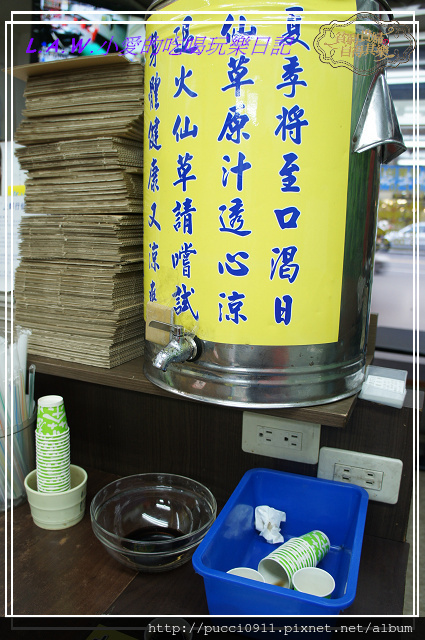 L.A.W.小愛的吃喝玩樂日記
夏季將至口渴日
仙草原汁透心涼
退火仙草請嚐試
身體健康又涼爽
http://pucci0911.pixnet.net/album